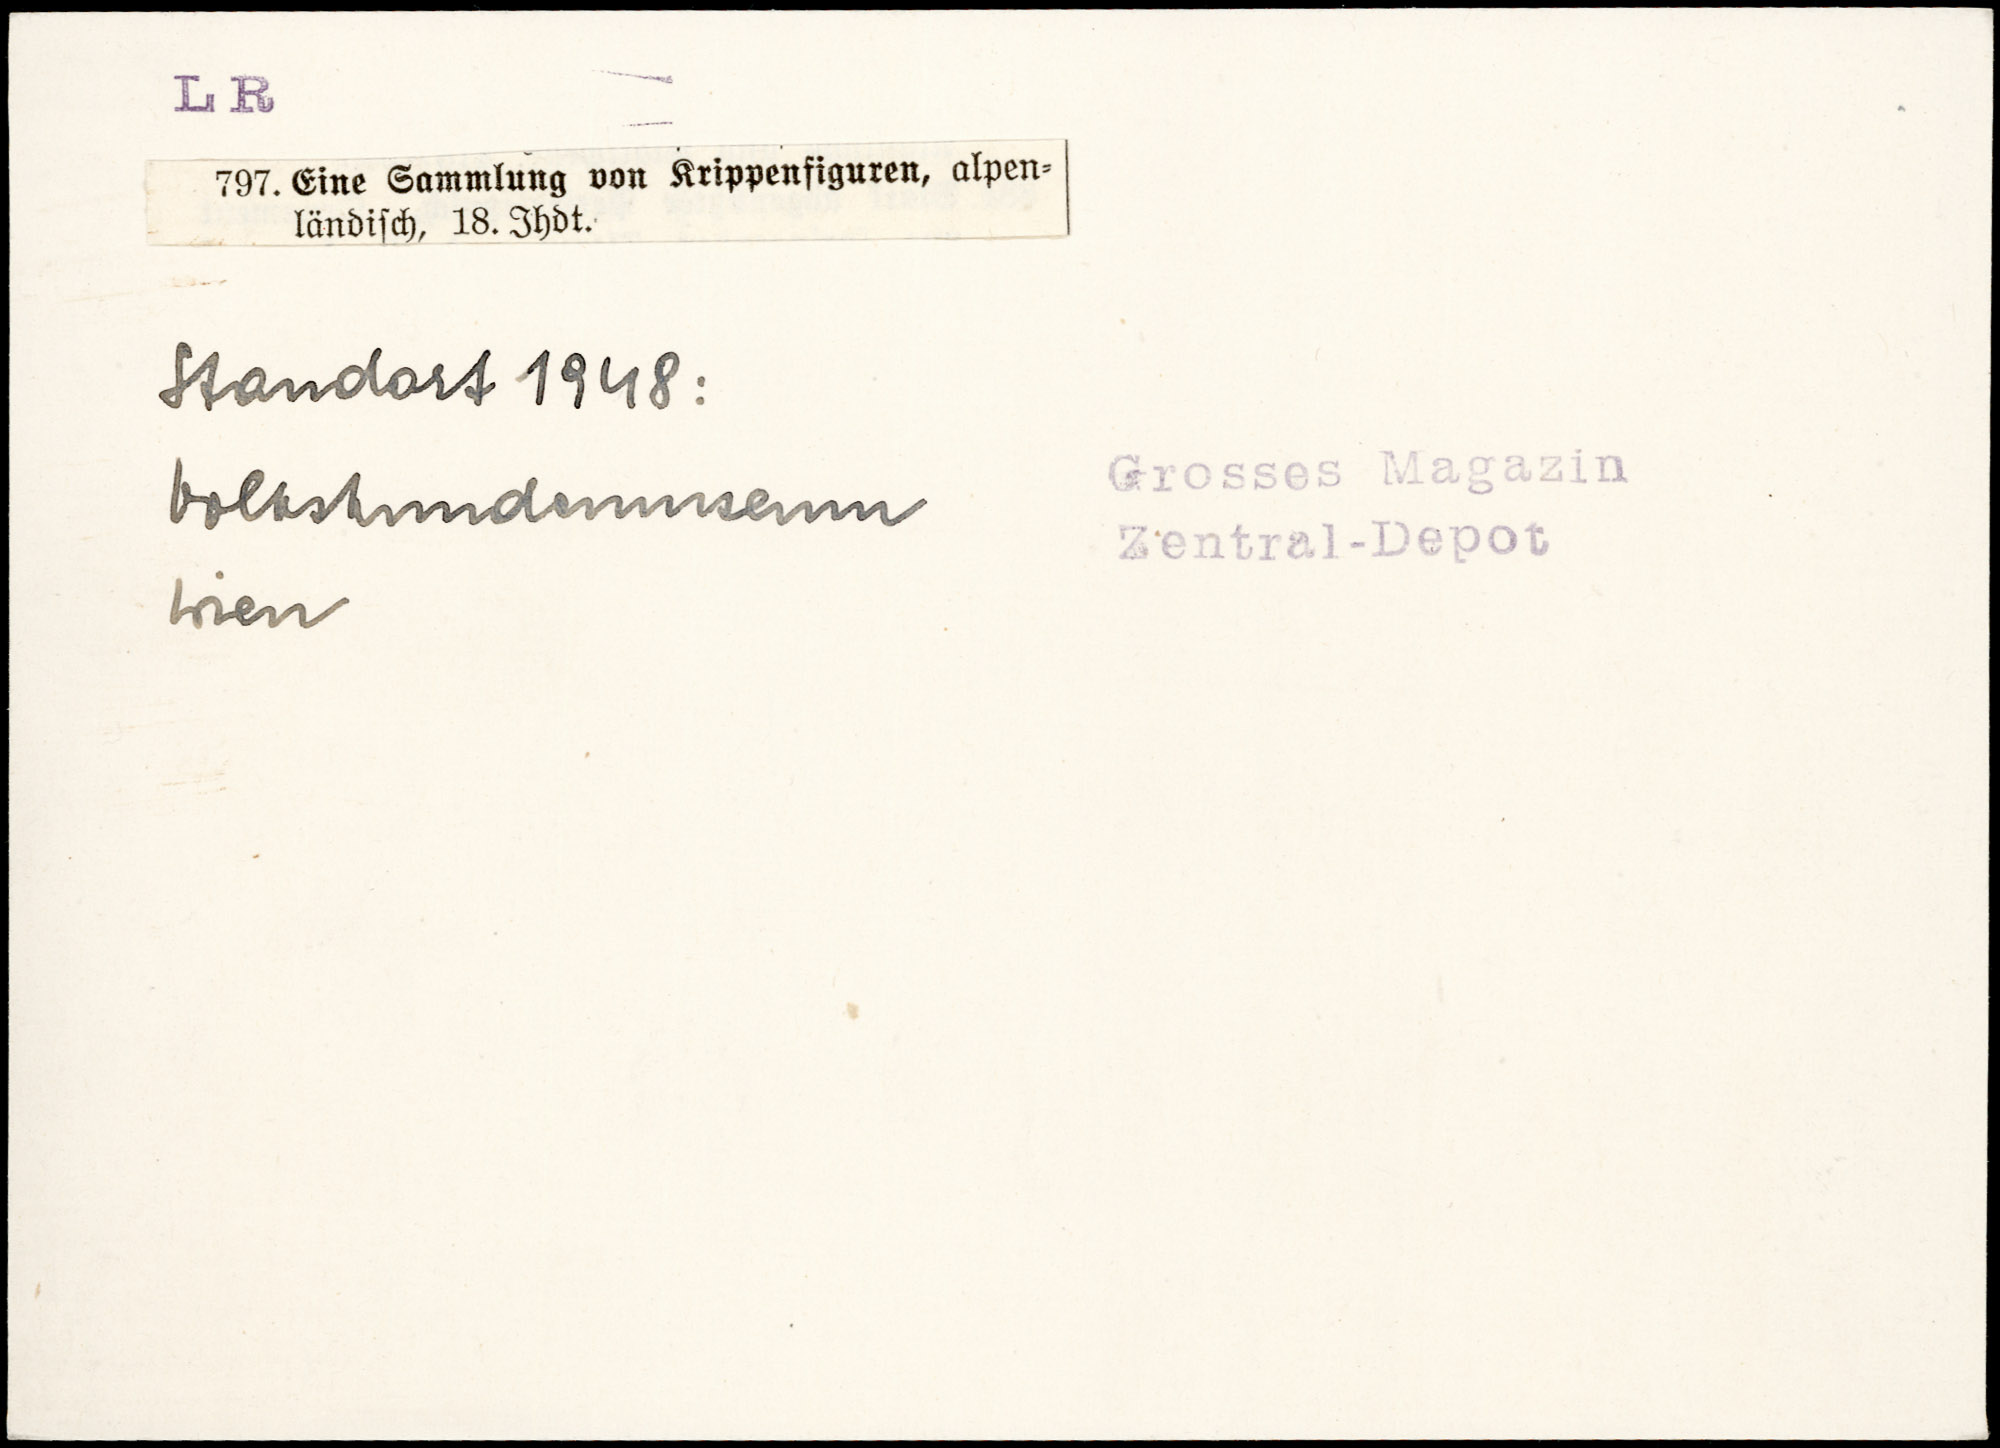 LR
797. Eine Sammlung von Krippenfiguren, alpen-
ländisch, 18. Jhdt.
Standort 1948:
Volkskundemuseum
Wien
Grosses Magazin
Zentral-Depot